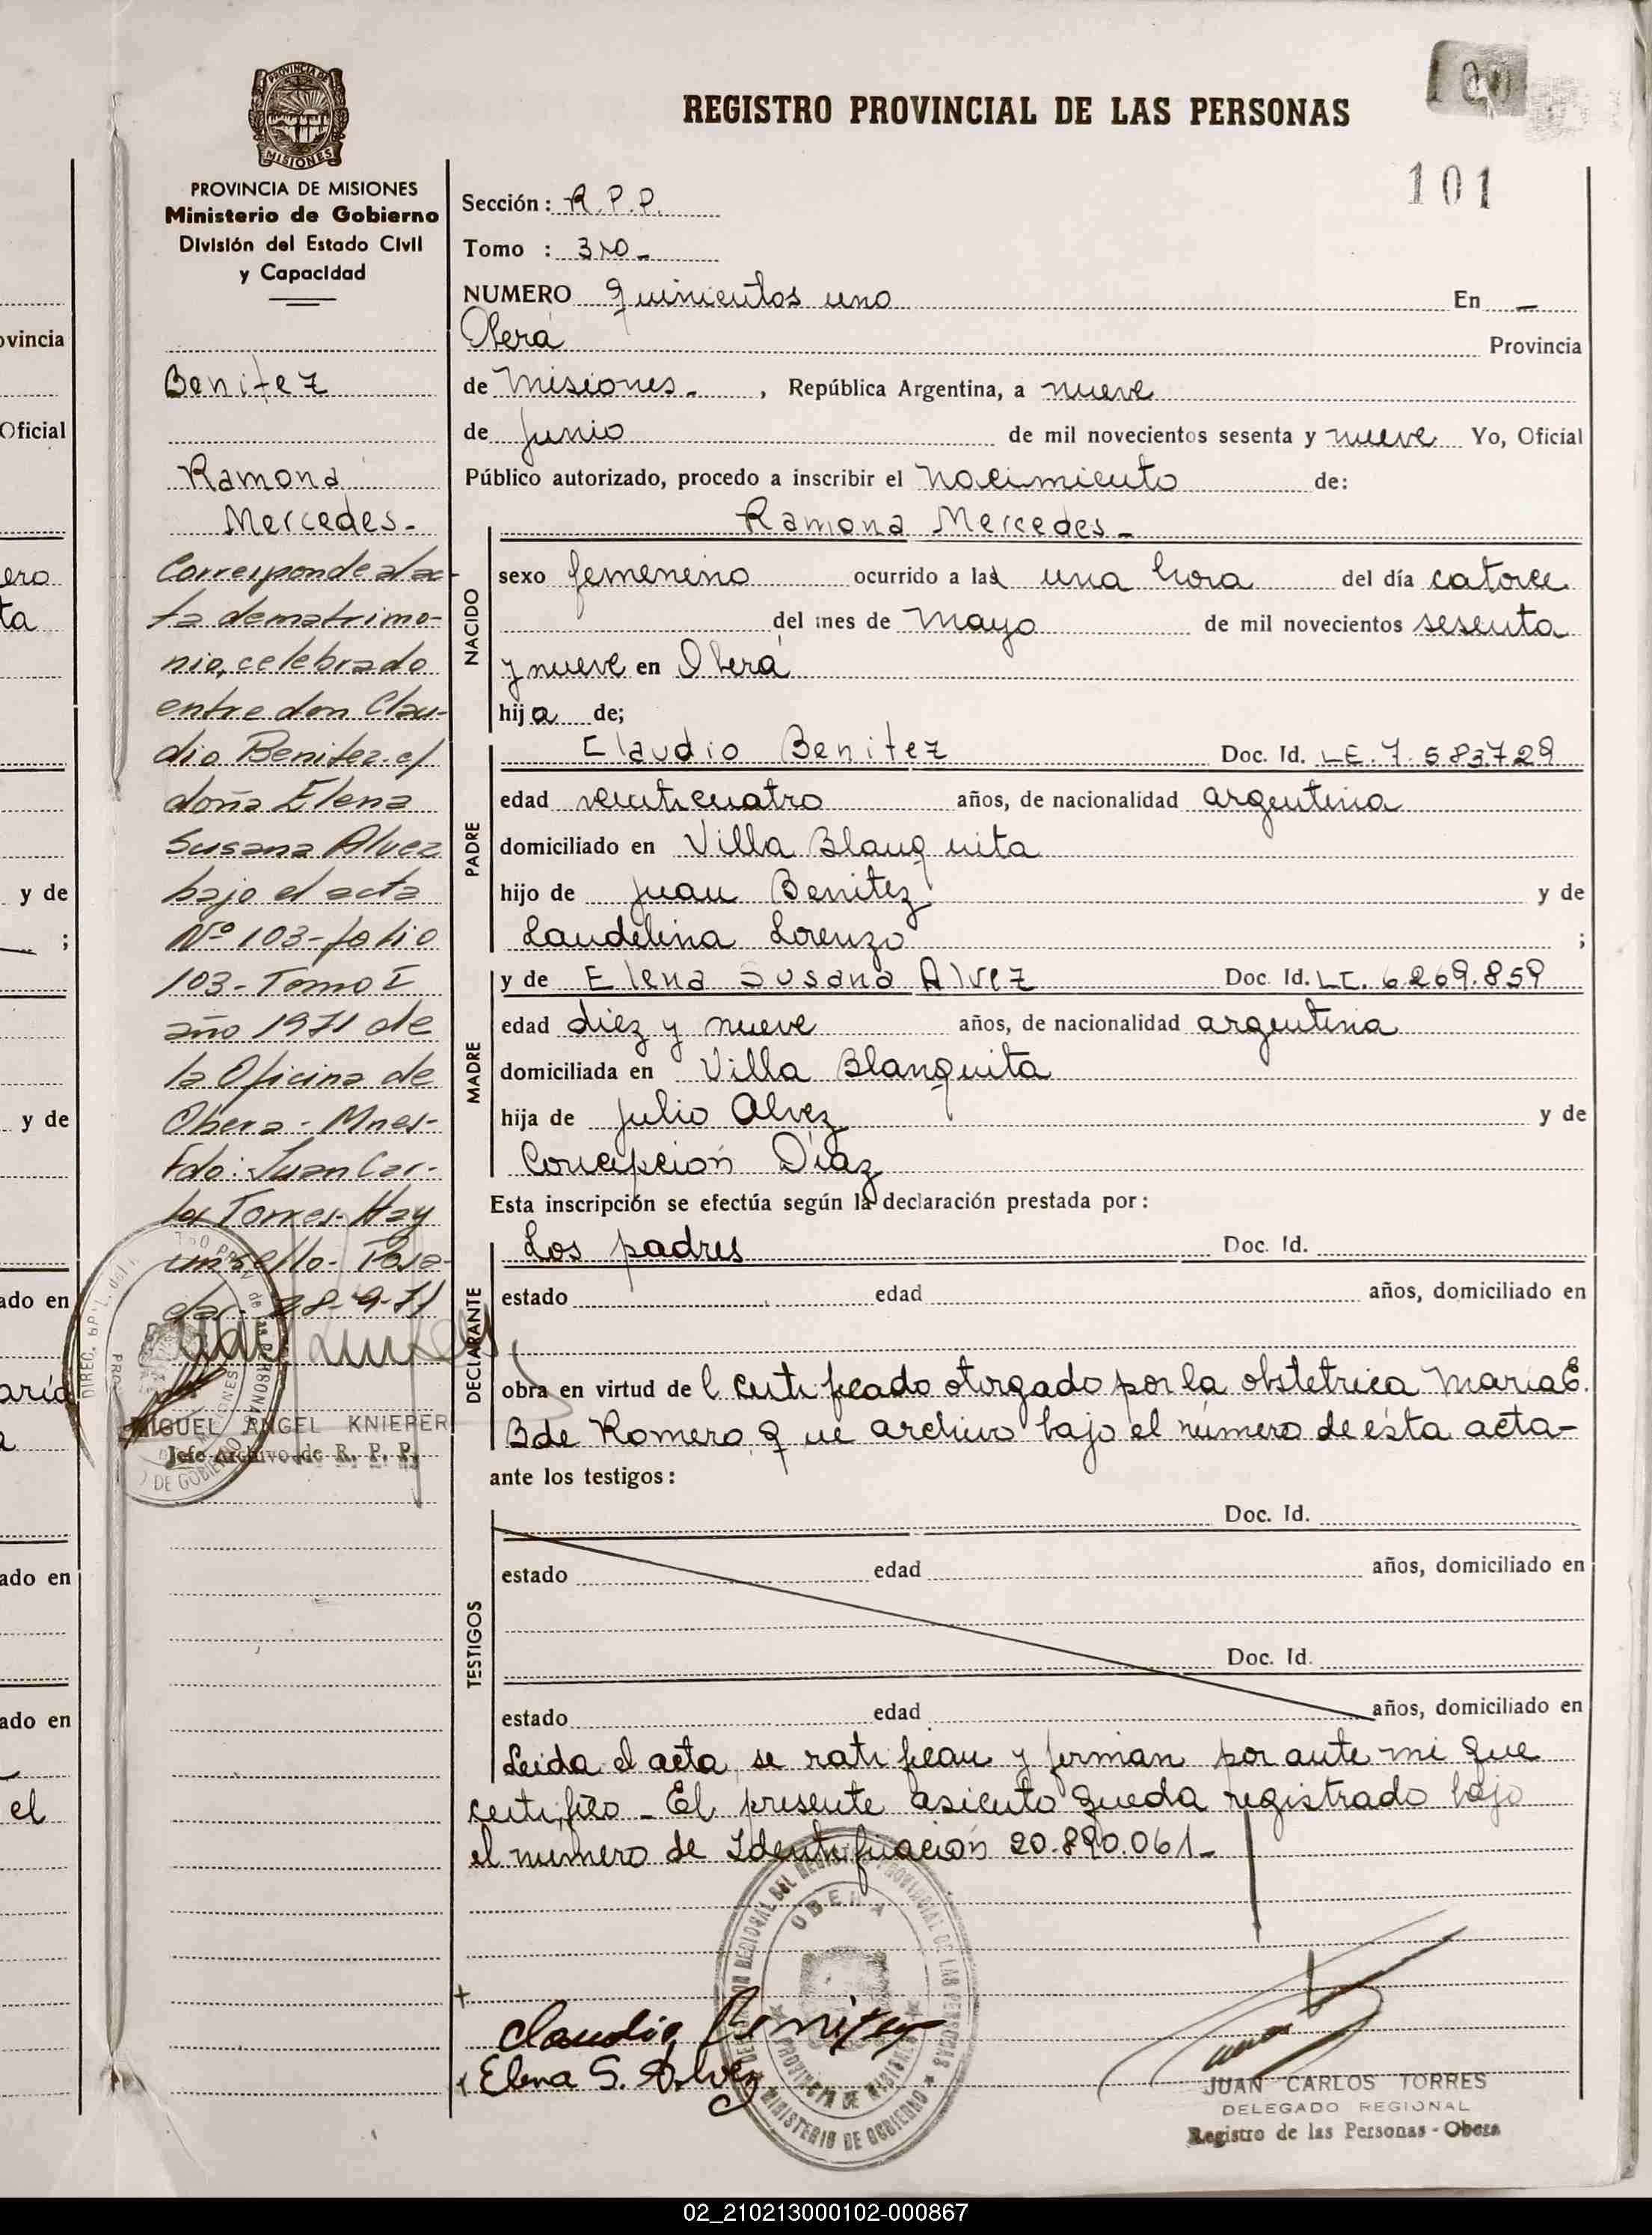 REGISTRO PROVINCIAL DE LAS PERSONAS
101
PROVINCIA DE
MISIONES
PROVINCIA DE MISIONES
Ministerio de Gobierno
División del Estado Civil
y Capacidad
Benitez
Ramona
Mercedes-
Corresponde al ac-
ta de matrimo-
nio, celebrado
entre don Clau-
dio Benitez c/
doña Elena
Susana Alvez
bajo el acta
Nº 103- folio
103- Tomo I
año 1971 de
la Oficina de
Obera - Mnes-
Fdo: Juan Car-
los Torres- Hay
un sello- Posa-
das- 28-9-71
MIGUEL ANGEL KNIEPER
Jefe Archivo de R. P. P.
Sección: R.P.P.
Tomo : 3ro-
NUMERO quinientos uno En —
Oberá Provincia
de Misiones- , República Argentina, a nueve
de Junio de mil novecientos sesenta y nueve Yo, Oficial
Público autorizado, procedo a inscribir el Nacimiento de:
Ramona Mercedes-
NACIDO
sexo femenino ocurrido a las una hora del día catorce
del mes de Mayo de mil novecientos sesenta
y nueve en Oberá
hija de;
PADRE
Claudio Benitez Doc. Id. LE. 7.583.729
edad veinticuatro años, de nacionalidad argentina
domiciliado en Villa Blanquita
hijo de Juan Benitez y de
Laudelina Lorenzo ;
MADRE
y de Elena Susana Alvez Doc. Id. LC. 6.269.859
edad diez y nueve años, de nacionalidad argentina
domiciliada en Villa Blanquita
hija de Julio Alvez y de
Concepción Díaz
Esta inscripción se efectúa según la declaración prestada por:
DECLARANTE
Los padres Doc. Id.
estado edad años, domiciliado en
obra en virtud del certificado otorgado por la obstetrica Maria E.
B de Romero, que archivo bajo el número de esta acta-
ante los testigos:
TESTIGOS
Doc. Id.
estado edad años, domiciliado en
Doc. Id.
estado edad años, domiciliado en
Leida el acta, se ratifican y firman por ante mi que
certifico - El presente asiento queda registrado bajo
el número de Identificación 20.890.061-
DELEGACION REGIONAL DEL REGISTRO PROVINCIAL DE LAS PERSONAS
OBERA
PROVINCIA DE MISIONES
MINISTERIO DE GOBIERNO
Claudio Benitez
Elena S. Alvez
JUAN CARLOS TORRES
DELEGADO REGIONAL
Registro de las Personas - Obera
ovincia
Oficial
ero
ta
y de
;
y de
ado en
aría
ado en
ado en
el
02_210213000102-000867